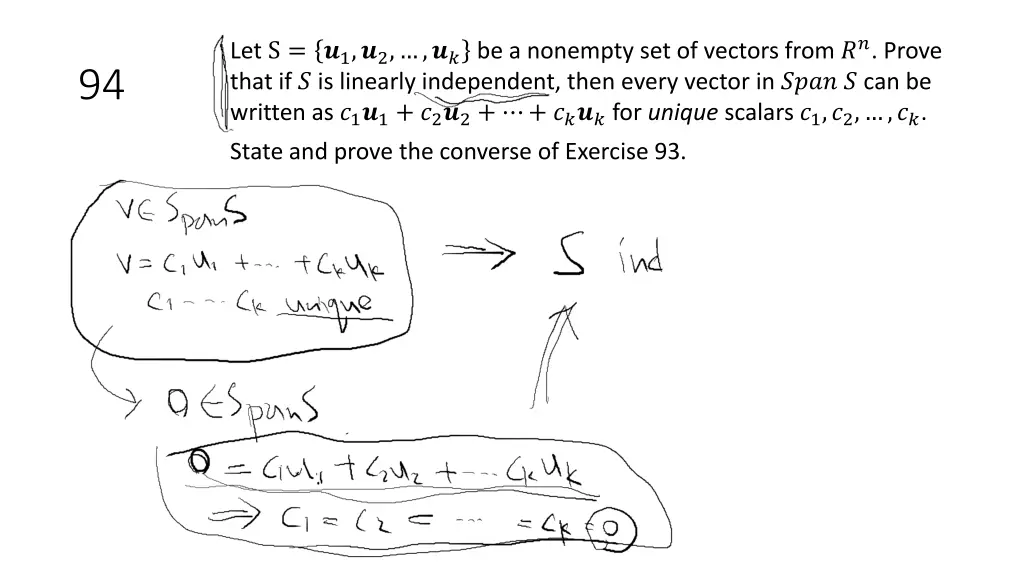 94
Let S = {𝒖₁, 𝒖₂, … , 𝒖ₖ} be a nonempty set of vectors from 𝑅ⁿ. Prove
that if 𝑆 is linearly independent, then every vector in 𝑆𝑝𝑎𝑛 𝑆 can be
written as 𝑐₁𝒖₁ + 𝑐₂𝒖₂ + ⋯ + 𝑐ₖ𝒖ₖ for unique scalars 𝑐₁, 𝑐₂, … , 𝑐ₖ.
State and prove the converse of Exercise 93.
V ∈ Span S
V = C₁ U₁ + ⋯ + Cₖ Uₖ
C₁ ⋯ Cₖ unique
⟹ S ind
0 ∈ Span S
0 = C₁U₁ + C₂U₂ + ⋯ Cₖ Uₖ
⟹ C₁ = C₂ = ⋯ = Cₖ = 0